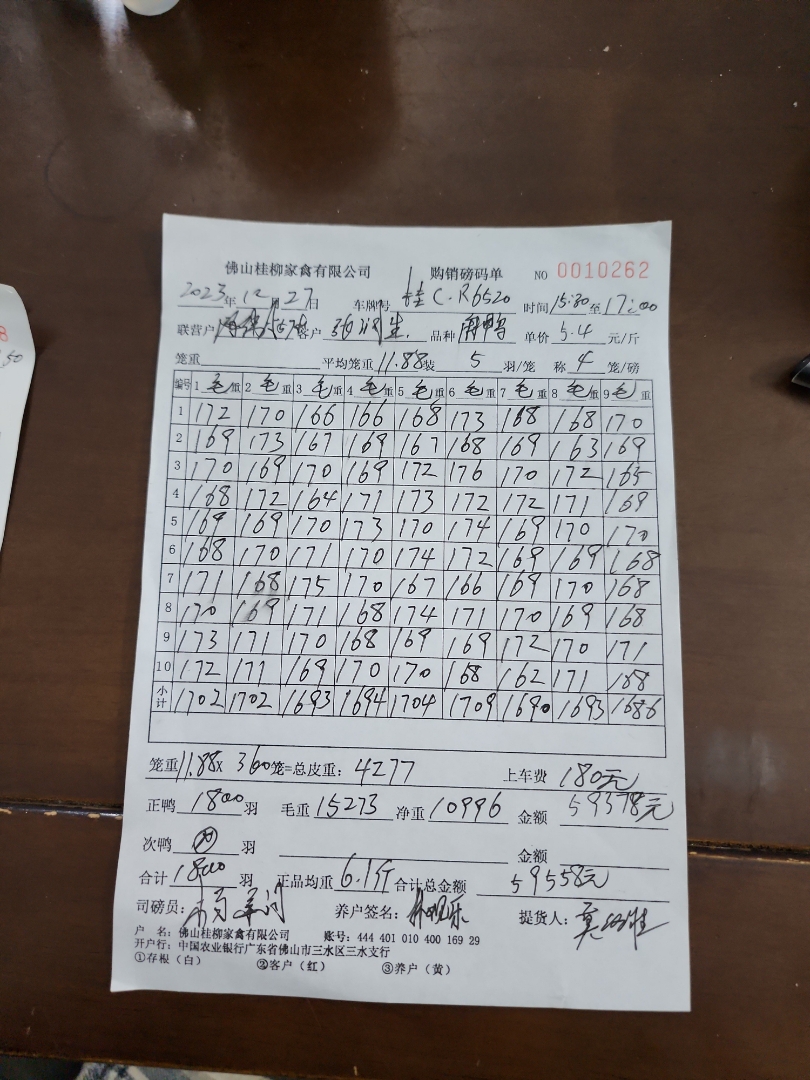 佛山桂柳家禽有限公司 购销磅码单 NO 0010262
2023年12月27日 车牌号 桂C.R6520 时间15:30至17:00
联营户 客户 品种 麻鸭 单价 5.4 元/斤
笼重 平均笼重11.88装 5 羽/笼 称 4 笼/磅
编号 1 毛重 2 毛重 3 毛重 4 毛重 5 毛重 6 毛重 7 毛重 8 毛重 9 毛重
1 172 170 166 166 168 173 168 168 170
2 169 173 167 169 167 168 169 163 169
3 170 169 170 169 172 176 170 172 165
4 168 172 164 171 173 172 172 171 169
5 169 169 170 173 170 174 169 170 170
6 168 170 171 170 174 172 169 169 168
7 171 168 175 170 167 166 169 170 168
8 170 169 171 168 174 171 170 169 168
9 173 171 170 168 169 169 172 170 171
10 172 171 169 170 170 168 162 171 168
小计 1702 1702 1693 1694 1704 1709 1690 1693 1686
笼重11.88x 360笼=总皮重: 4277 上车费 180元
正鸭 1800 羽 毛重15273 净重10996 金额 59378元
次鸭 羽 金额
合计 1800 羽 正品均重 6.1斤 合计总金额 59558元
司磅员: 养户签名: 提货人:
户 名: 佛山桂柳家禽有限公司 账号: 444 401 010 400 169 29
开户行: 中国农业银行广东省佛山市三水区三水支行
①存根(白) ②客户(红) ③养户(黄)